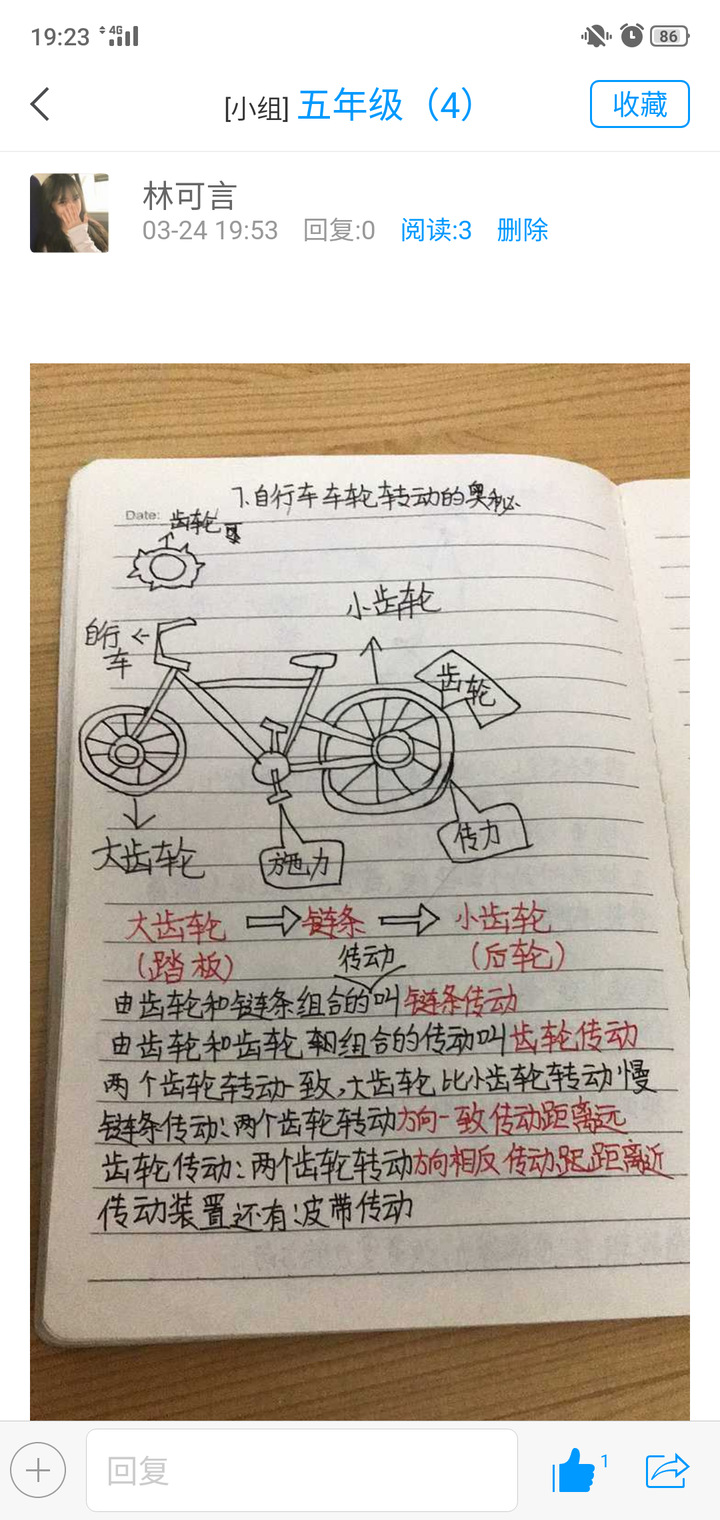 19:23
4G
86
[小组] 五年级（4）
收藏
林可言
03-24 19:53 回复:0 阅读:3 删除
7.自行车车轮转动的奥秘
Date:
齿轮
小齿轮
自行车
齿轮
大齿轮
施力
传力
大齿轮 链条 小齿轮
(踏板) 传动 (后轮)
由齿轮和链条组合的叫链条传动
由齿轮和齿轮组合的传动叫齿轮传动
两个齿轮转动一致,大齿轮比小齿轮转动慢
链条传动:两个齿轮转动方向一致传动距离远
齿轮传动:两个齿轮转动方向相反传动距离近
传动装置还有:皮带传动
回复
1